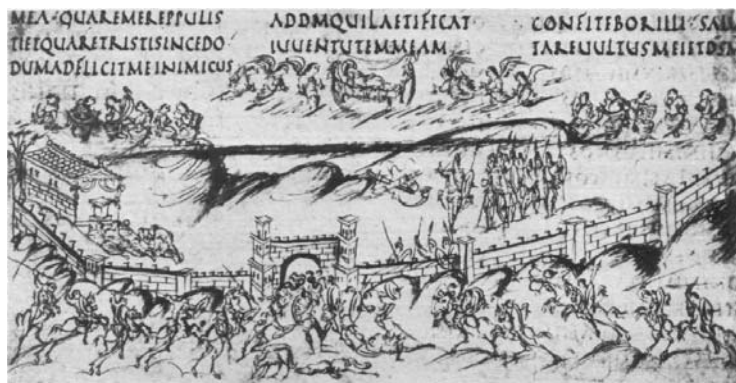 MEA· QUAREMEREPPULIS
TIETQUARETRISTISINCEDO
DUMADFLIGITMEINIMICUS
ADDMQUILAETIFICAT
IUUENTUTEMMEAM
CONFITEBORILLI· SALU
TAREUULTUSMEIETDSM